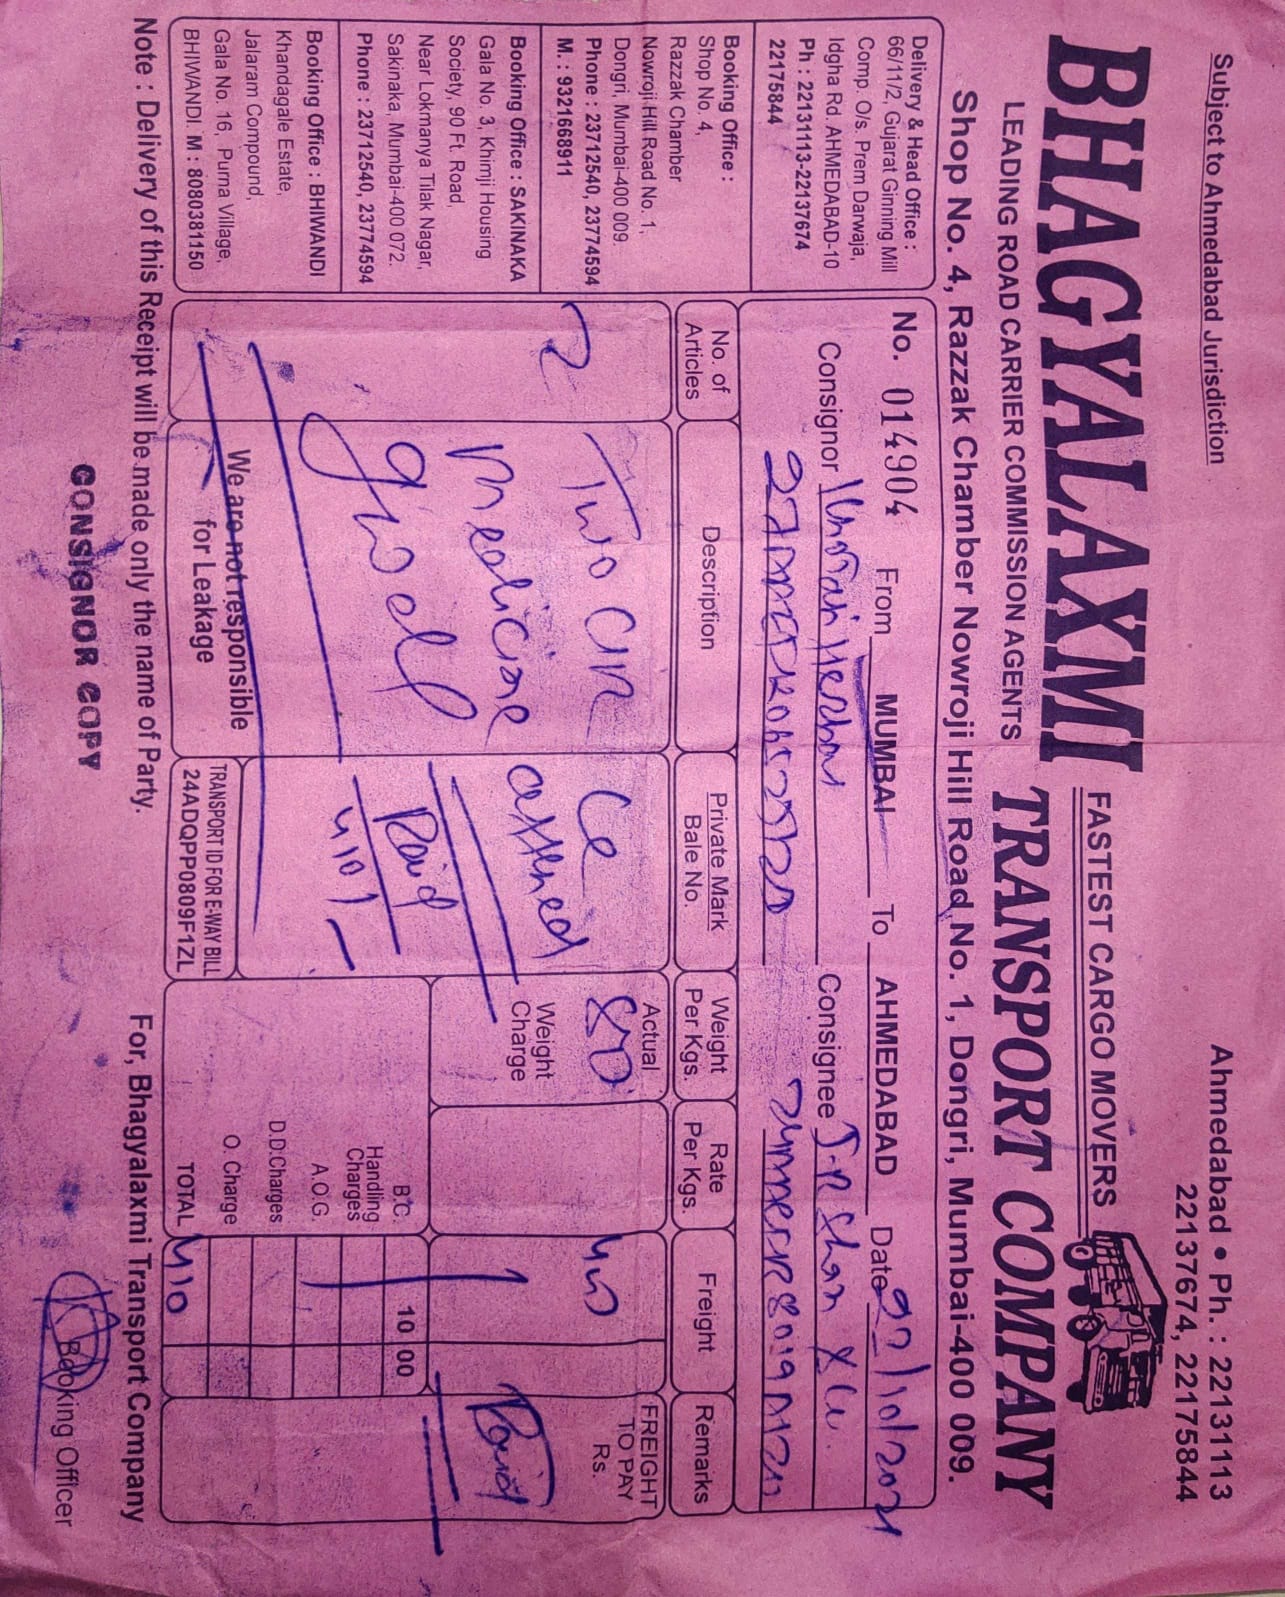 Subject to Ahmedabad Jurisdiction
Ahmedabad • Ph. : 22131113
22137674, 22175844
FASTEST CARGO MOVERS
BHAGYALAXMI TRANSPORT COMPANY
LEADING ROAD CARRIER COMMISSION AGENTS
Shop No. 4, Razzak Chamber Nowroji Hill Road No. 1, Dongri, Mumbai-400 009.
Delivery & Head Office :
66/11/2, Gujarat Ginning Mill
Comp. O/s. Prem Darwaja,
Idgha Rd. AHMEDABAD-10
Ph : 22131113-22137674
22175844
Booking Office :
Shop No. 4,
Razzak Chamber
Nowroji Hill Road No. 1,
Dongri, Mumbai-400 009.
Phone : 23712540, 23774594
M. : 9321668911
Booking Office : SAKINAKA
Gala No. 3, Khimji Housing
Society, 90 Ft. Road,
Near Lokmanya Tilak Nagar,
Sakinaka, Mumbai-400 072.
Phone : 23712540, 23774594
Booking Office : BHIWANDI
Khandagale Estate,
Jalaram Compound,
Gala No. 16, Purna Village,
BHIWANDI. M : 8080381150
No. 014904 From MUMBAI To AHMEDABAD Date 22/10/2021
Consignor
Consignee
No. of Articles
Description
Private Mark
Bale No.
Weight Per Kgs.
Rate Per Kgs.
Freight
Remarks
2
Two
medicine
Paid
410/-
Actual
80
Weight Charge
FREIGHT TO PAY Rs.
Paid
B.C. 10 00
Handling Charges
A.O.G.
D.D.Charges
O. Charge
TOTAL 410
We are not responsible
for Leakage
TRANSPORT ID FOR E-WAY BILL
24ADQPP0809F1ZL
Note : Delivery of this Receipt will be made only the name of Party.
For, Bhagyalaxmi Transport Company
CONSIGNOR COPY
Booking Officer